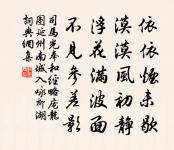 依依煙未歇
漠漠風初靜
浮花滿波面
不見參差影
司馬光奉和經略庞龍
圖延州南城八詠柳湖
詞典網集